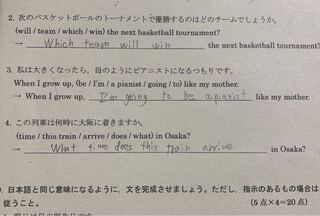 2. 次のバスケットボールのトーナメントで優勝するのはどのチームでしょうか。
(will / team / which / win) the next basketball tournament?
→ Which team will win the next basketball tournament?
3. 私は大きくなったら、母のようにピアニストになるつもりです。
When I grow up, (be / I'm / a pianist / going / to) like my mother.
→ When I grow up, I'm going to be a pianist like my mother.
4. この列車は何時に大阪に着きますか。
(time / this train / arrive / does / what) in Osaka?
→ What time does this train arrive in Osaka?
日本語と同じ意味になるように、文を完成させましょう。ただし、指示のあるもの場合は
従うこと。 (5点×4=20点)